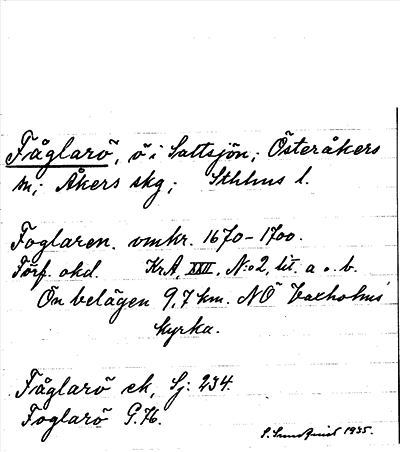 Fåglarö, ö i Saltsjön; Österåkers
sn; Åkers skg; Sthlms l.
Foglaren. omkr. 1670-1700.
Förf. okd. KrA, XXII, N:o 2, lit. a o. b.
Ön belägen 9,7 km. NÖ Vaxholms
kyrka.
Fåglarö ek, Sj: 234.
Foglarö G.
S. Sundquist 1935.